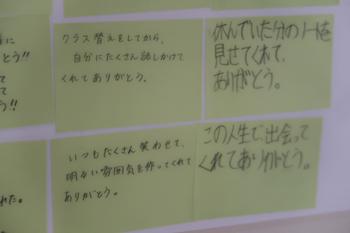 に
とう!!
て
て
う!!
クラス替えをしてから、
自分にたくさん話しかけて
くれてありがとう。
休んでいた分のノートを
見せてくれて、
ありがとう。
れた。
いつもたくさん笑わせて、
明るい雰囲気を作ってくれて
ありがとう。
この人生で、出会って
くれてありがとう。